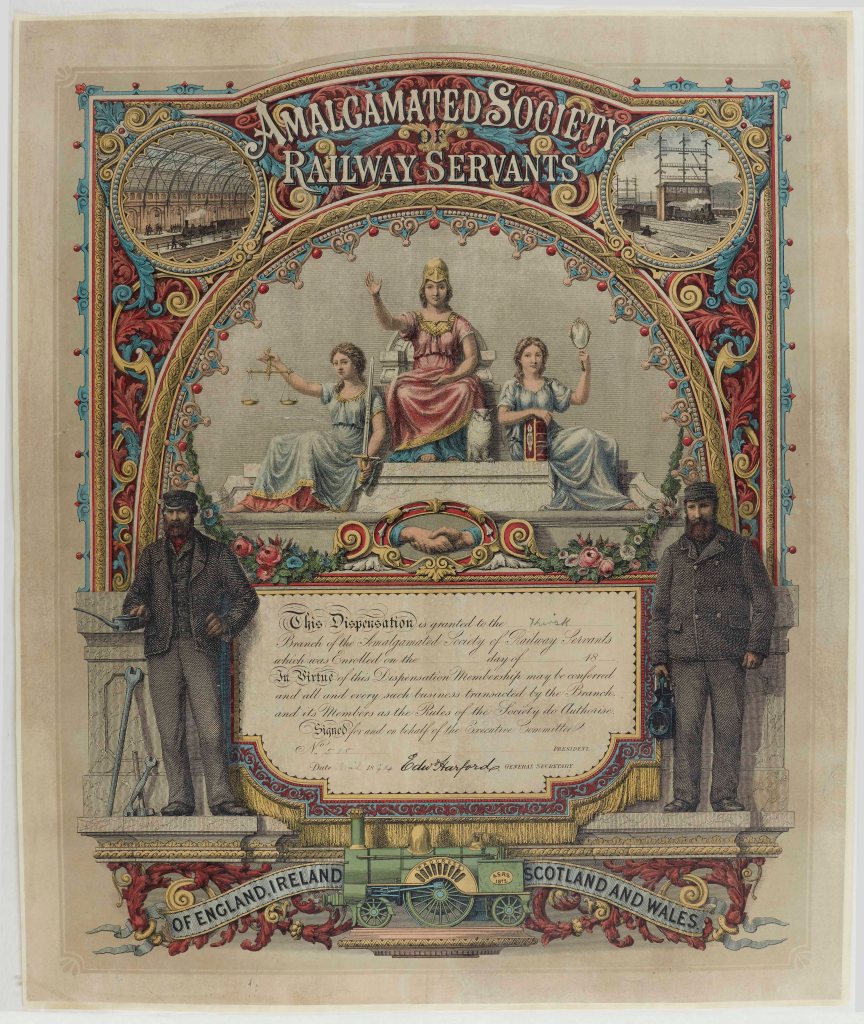 AMALGAMATED SOCIETY
OF
RAILWAY SERVANTS
This Dispensation is granted to the Thirsk
Branch of the Amalgamated Society of Railway Servants
which was Enrolled on the day of 18
In Virtue of this Dispensation Membership may be conferred
and all and every such business transacted by the Branch
and its Members as the Rules of the Society do Authorise.
Signed for and on behalf of the Executive Committee
No.
PRESIDENT
Date 18 Edwd Harford, GENERAL SECRETARY
A.S.R.S.
OF ENGLAND, IRELAND SCOTLAND AND WALES.